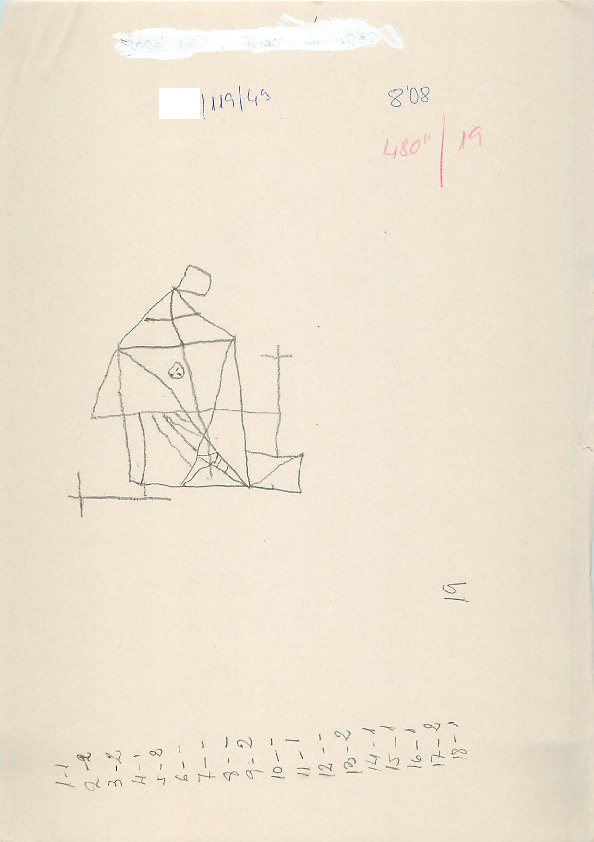 /119/49
8'08
480"/19
19
1-1
2-2
3-2
4-1
5-2
6--
7--
8--
9-2
10--
11-1
12--
13-2
14-1
15-1
16-1
17-2
18-1